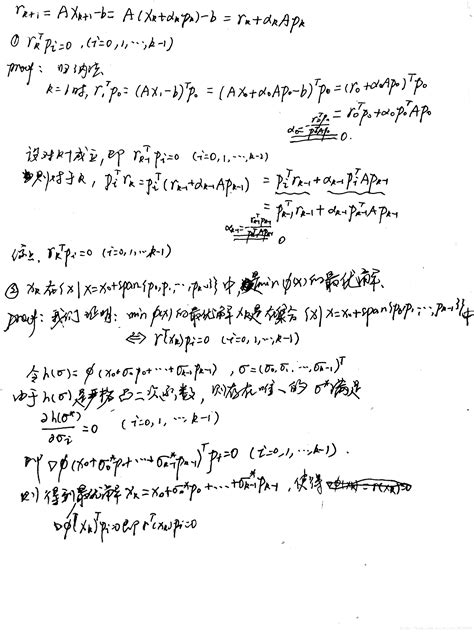 r_{k+1} = Ax_{k+1} - b = A(x_k + α_k p_k) - b = r_k + α_k A p_k
① r_k^T p_i = 0, (i = 0, 1, ⋯, k-1)
proof: 归纳法
k=1时, r_1^T p_0 = (Ax_1 - b)^T p_0 = (Ax_0 + α_0 A p_0 - b)^T p_0 = (r_0 + α_0 A p_0)^T p_0
= r_0^T p_0 + α_0 p_0^T A p_0
α_0 = -r_0^T p_0 / p_0^T A p_0 = 0.
设对k-1成立, 即 r_{k-1}^T p_i = 0 (i = 0, 1, ⋯, k-2)
则对于k, p_i^T r_k = p_i^T (r_{k-1} + α_{k-1} A p_{k-1}) = p_i^T r_{k-1} + α_{k-1} p_i^T A p_{k-1}
= p_{k-1}^T r_{k-1} + α_{k-1} p_{k-1}^T A p_{k-1}
0
综上, r_k^T p_i = 0 (i = 0, 1, ⋯, k-1)
② x_k 在 {x | x = x_0 + span{p_0, p_1, ⋯, p_{k-1}}} 中, 是 min φ(x) 的最优解.
proof: 我们证明: min φ(x) 的最优解 x_k 是在集合 {x | x = x_0 + span{p_0, p_1, ⋯, p_{k-1}}} 中
⇔ r^T(x_k) p_i = 0 (i = 0, 1, ⋯, k-1)
令 h(σ) = φ(x_0 + σ_0 p_0 + ⋯ + σ_{k-1} p_{k-1}), σ = (σ_0, σ_1, ⋯, σ_{k-1})^T
由于 h(σ) 是严格凸二次函数, 则存在唯一的 σ* 满足
∂h(σ*)/∂σ_i = 0 (i = 0, 1, ⋯, k-1)
即 ∇φ(x_0 + σ_0* p_0 + ⋯ + σ_{k-1}* p_{k-1})^T p_i = 0 (i = 0, 1, ⋯, k-1).
则得到最优解 x_k = x_0 + σ_0* p_0 + ⋯ + σ_{k-1}* p_{k-1}, 使得
∇φ^T(x_k) p_i = 0 即 r^T(x_k) p_i = 0